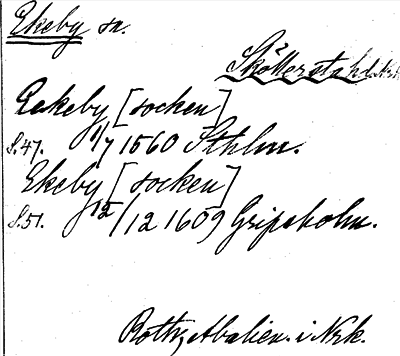 Ekeby sn.
Sköllerstahd.
Eekeby [socken]
S. 47. 1/7 1560 Sthlm.
Ekeby [socken]
S. 51. 12/12 1609 Gripsholm.
i Nrk.